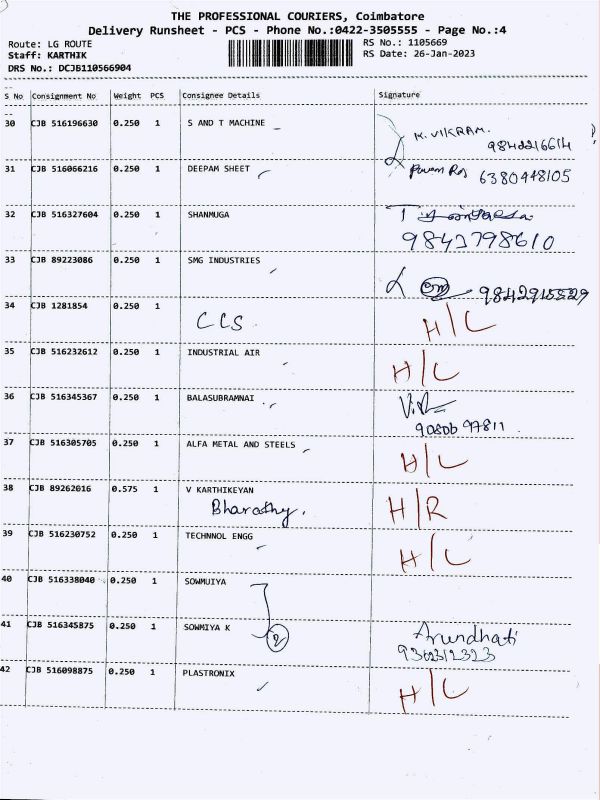 THE PROFESSIONAL COURIERS, Coimbatore
Delivery Runsheet - PCS - Phone No.:0422-3505555 - Page No.:4
Route: LG ROUTE
RS No.: 1105669
Staff: KARTHIK
RS Date: 26-Jan-2023
DRS No.: DCJB110566904
S No Consignment No Weight PCS Consignee Details Signature
30 CJB 516196630 0.250 1 S AND T MACHINE K. VIKRAM.
9842216614
31 CJB 516066216 0.250 1 DEEPAM SHEET 6380448105
32 CJB 516327604 0.250 1 SHANMUGA
9842798610
33 CJB 89223086 0.250 1 SMG INDUSTRIES
34 CJB 1281854 0.250 1
CCS. H/L
35 CJB 516232612 0.250 1 INDUSTRIAL AIR
H/L
36 CJB 516345367 0.250 1 BALASUBRAMNAI
37 CJB 516305705 0.250 1 ALFA METAL AND STEELS
H/L
38 CJB 89262016 0.575 1 V KARTHIKEYAN
Bharathy. H/R
39 CJB 516230752 0.250 1 TECHNNOL ENGG
H/L
40 CJB 516338040 0.250 1 SOWMUIYA
41 CJB 516345875 0.250 1 SOWMIYA K
2 Arundhati
9362312323
42 CJB 516098875 0.250 1 PLASTRONIX
H/L